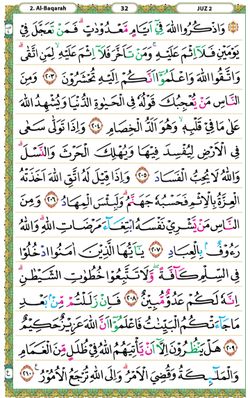 2. Al-Baqarah 32 JUZ 2
وَاذْكُرُوا اللّٰهَ فِيْٓ اَيَّامٍ مَّعْدُوْدٰتٍ ۗ فَمَنْ تَعَجَّلَ فِيْ
يَوْمَيْنِ فَلَآ اِثْمَ عَلَيْهِ ۚ وَمَنْ تَاَخَّرَ فَلَآ اِثْمَ عَلَيْهِ ۙ لِمَنِ اتَّقٰى ۗ
وَاتَّقُوا اللّٰهَ وَاعْلَمُوْٓا اَنَّكُمْ اِلَيْهِ تُحْشَرُوْنَ ۝٢٠٣ وَمِنَ
النَّاسِ مَنْ يُّعْجِبُكَ قَوْلُهٗ فِى الْحَيٰوةِ الدُّنْيَا وَيُشْهِدُ اللّٰهَ
عَلٰى مَا فِيْ قَلْبِهٖ ۙ وَهُوَ اَلَدُّ الْخِصَامِ ۝٢٠٤ وَاِذَا تَوَلّٰى سَعٰى
فِى الْاَرْضِ لِيُفْسِدَ فِيْهَا وَيُهْلِكَ الْحَرْثَ وَالنَّسْلَ ۗ
وَاللّٰهُ لَا يُحِبُّ الْفَسَادَ ۝٢٠٥ وَاِذَا قِيْلَ لَهُ اتَّقِ اللّٰهَ اَخَذَتْهُ
الْعِزَّةُ بِالْاِثْمِ فَحَسْبُهٗ جَهَنَّمُ ۗ وَلَبِئْسَ الْمِهَادُ ۝٢٠٦ وَمِنَ
النَّاسِ مَنْ يَّشْرِيْ نَفْسَهُ ابْتِغَآءَ مَرْضَاتِ اللّٰهِ ۗ وَاللّٰهُ
رَءُوْفٌۢ بِالْعِبَادِ ۝٢٠٧ يٰٓاَيُّهَا الَّذِيْنَ اٰمَنُوا ادْخُلُوْا
فِى السِّلْمِ كَآفَّةً ۖ وَّلَا تَتَّبِعُوْا خُطُوٰتِ الشَّيْطٰنِ ۗ
اِنَّهٗ لَكُمْ عَدُوٌّ مُّبِيْنٌ ۝٢٠٨ فَاِنْ زَلَلْتُمْ مِّنْۢ بَعْدِ
مَا جَآءَتْكُمُ الْبَيِّنٰتُ فَاعْلَمُوْٓا اَنَّ اللّٰهَ عَزِيْزٌ حَكِيْمٌ
۝٢٠٩ هَلْ يَنْظُرُوْنَ اِلَّآ اَنْ يَّأْتِيَهُمُ اللّٰهُ فِيْ ظُلَلٍ مِّنَ الْغَمَامِ
وَالْمَلٰٓئِكَةُ وَقُضِيَ الْاَمْرُ ۗ وَاِلَى اللّٰهِ تُرْجَعُ الْاُمُوْرُ ۝٢١٠